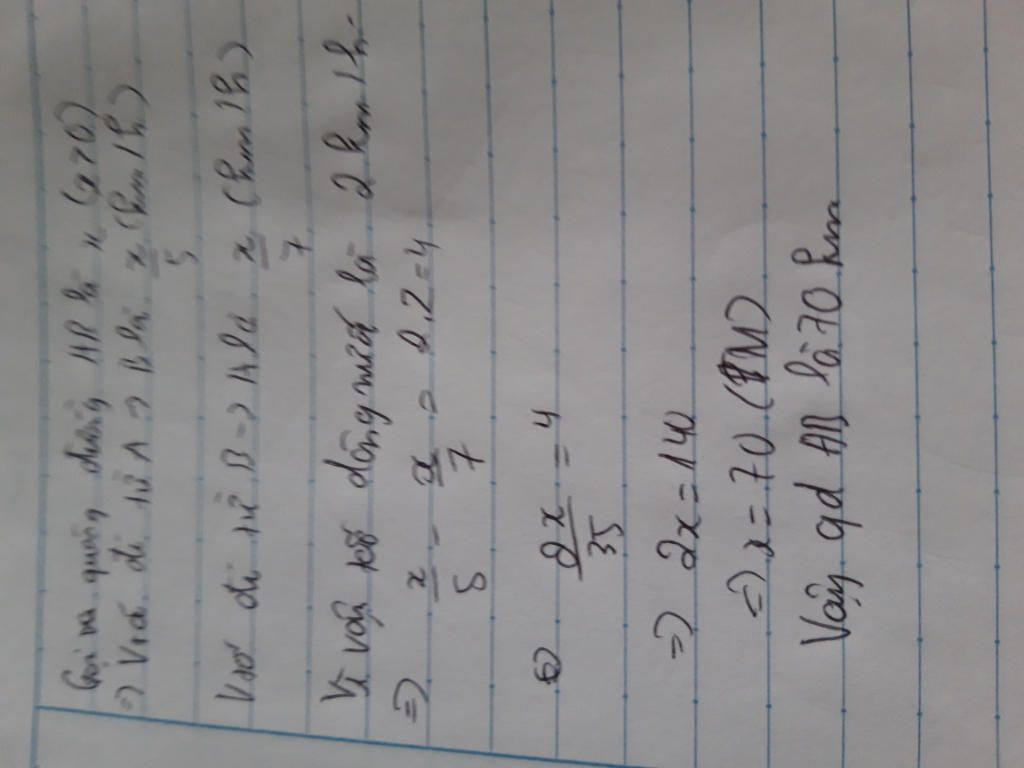 Gọi quãng đường AB là x (x>0)
=> Vtốc đi từ A -> B là x/5 (km/h)
Vtốc đi từ B -> A là x/7 (km/h)
Vì vận tốc dòng nước là 2 km/h.
=> x/5 - x/7 = 2.2=4
<=> 2x/35 = 4
=> 2x = 140
=> x = 70 (TM)
Vậy qđ AB là 70 km